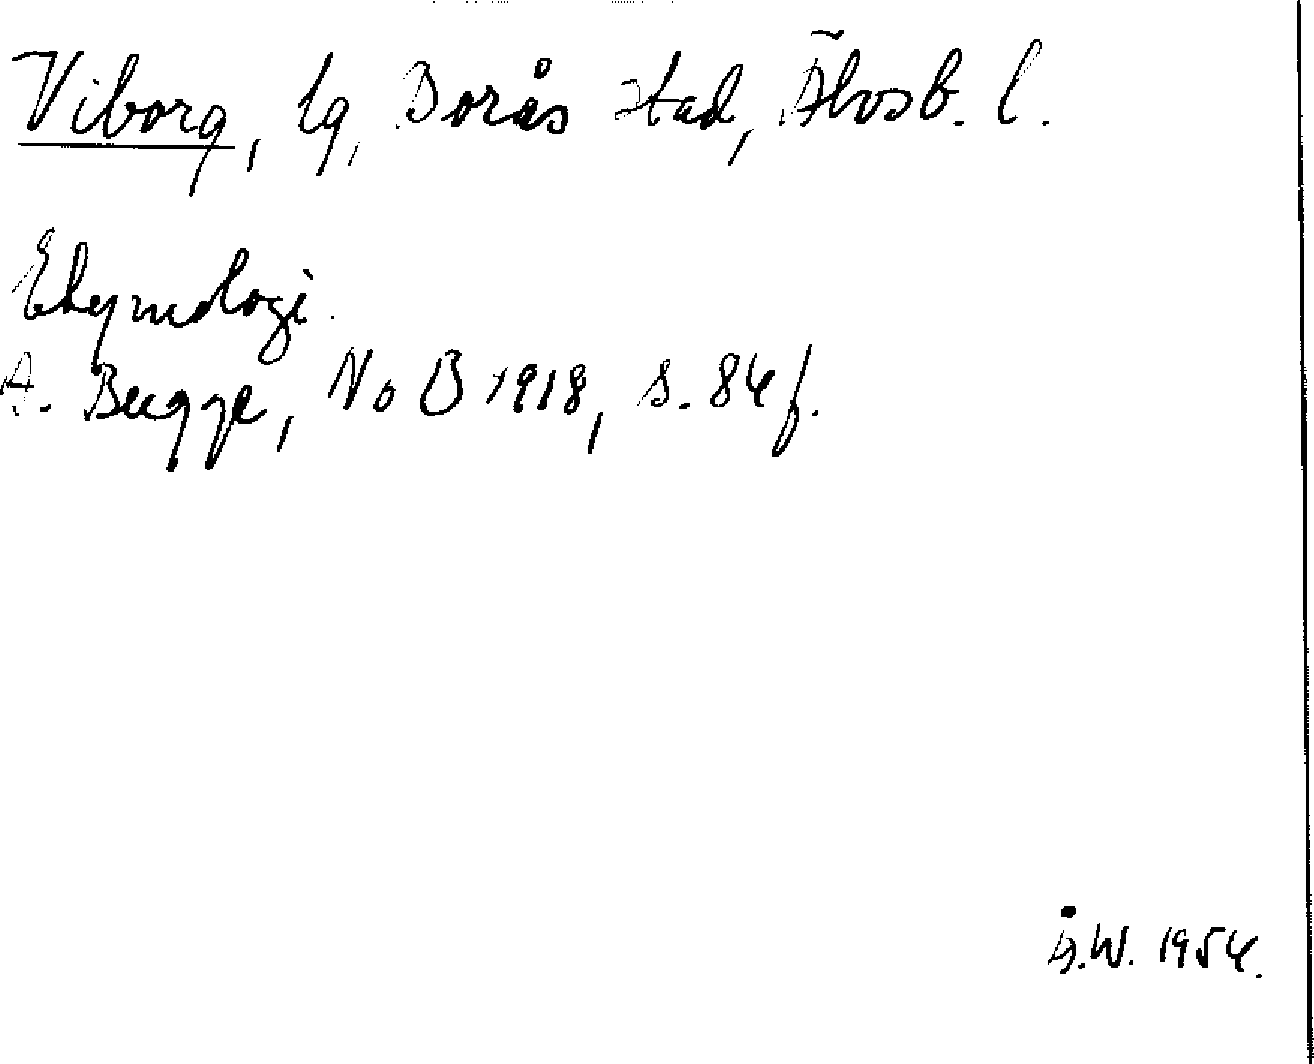 Viborg, lg, Borås stad, Älvsb. l.
Etymologi.
A. Bugge, NoB 1918, s. 84 f.
Å.W. 1954.